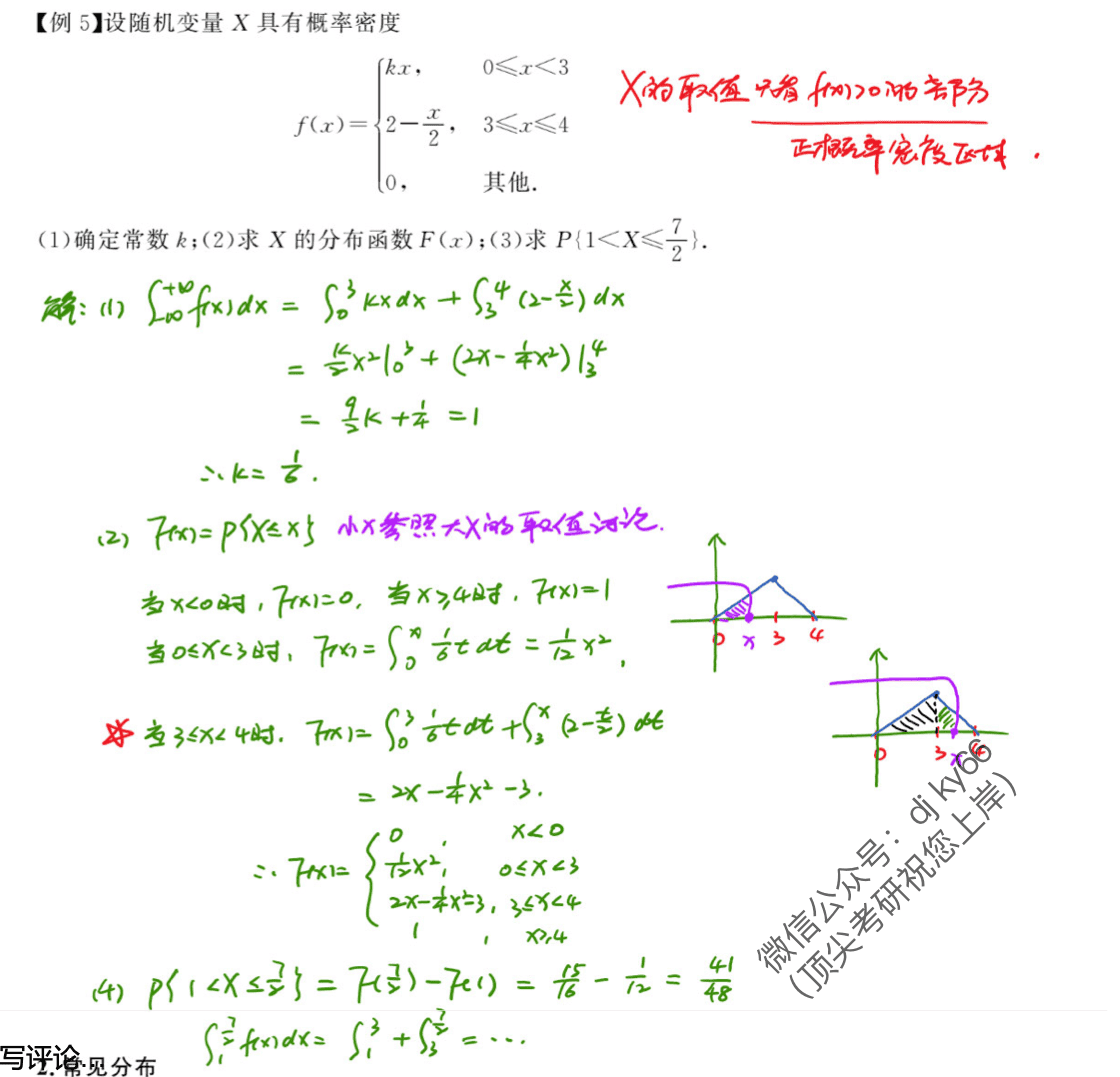 【例 5】设随机变量 X 具有概率密度
f(x)={kx, 0≤x<3
2-x/2, 3≤x≤4
0, 其他.
X的取值只看 f(x)>0的部分
正概率密度区域.
(1)确定常数 k;(2)求 X 的分布函数 F(x);(3)求 P{1<X≤7/2}.
解:(1) ∫_{-∞}^{+∞} f(x)dx = ∫_0^3 kxdx + ∫_3^4 (2-x/2)dx
= k/2 x²|_0^3 + (2x-1/4x²)|_3^4
= 9/2 k + 1/4 = 1
∴ k= 1/6.
(2) F(x)=P{X≤x} 小x参照大X的取值讨论.
当x<0时, F(x)=0, 当x≥4时, F(x)=1
当0≤x<3时, F(x)=∫_0^x 1/6 t dt = 1/12 x²,
0 x 3 4
当3≤x<4时. F(x)=∫_0^3 1/6 t dt+∫_3^x (2-t/2) dt
0 3 x 4
= 2x-1/4x²-3.
∴ F(x)={0, x<0
1/12x², 0≤x<3
2x-1/4x²-3, 3≤x<4
1, x≥4
(4) P{1<X≤7/2} = F(7/2)-F(1) = 15/16 - 1/12 = 41/48
∫_1^{7/2} f(x)dx= ∫_1^3 + ∫_3^{7/2} = …
微信公众号：djky66
(顶尖考研祝您上岸)
写评论
2. 常见分布